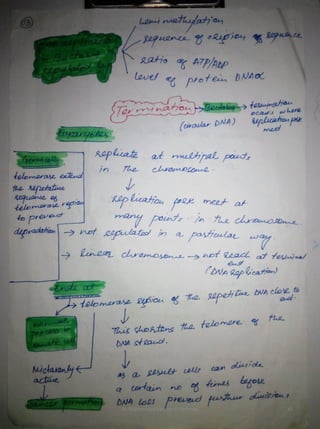 (13)
hemi methylation
sequence of oregion of sequence
ratio of ATP/ADP
level of protein DNAα
Termination → Bacteria → termination
occurs where
replication fork
meet
(circular DNA)
Eukaryotes
Germ cells
telomerase extend
the repetative
sequence of
telomerase region
to prevent
degradation
Replicate at multipal points
in the chromosome.
Replication fork meet at
many points in the chromosome.
→ not regulated in a particular way.
→ linear chromosome → not reach at terminal
end
(DNA Replication)
Ends at
→ telomerase region of the repetitive DNA close to
end.
This shortens the telomere of the
DNA strand.
process in
somatic cell
Mistakenly
active
as a result cells can divide
a certain no of times before
DNA loss prevent further division.
Cancer formation